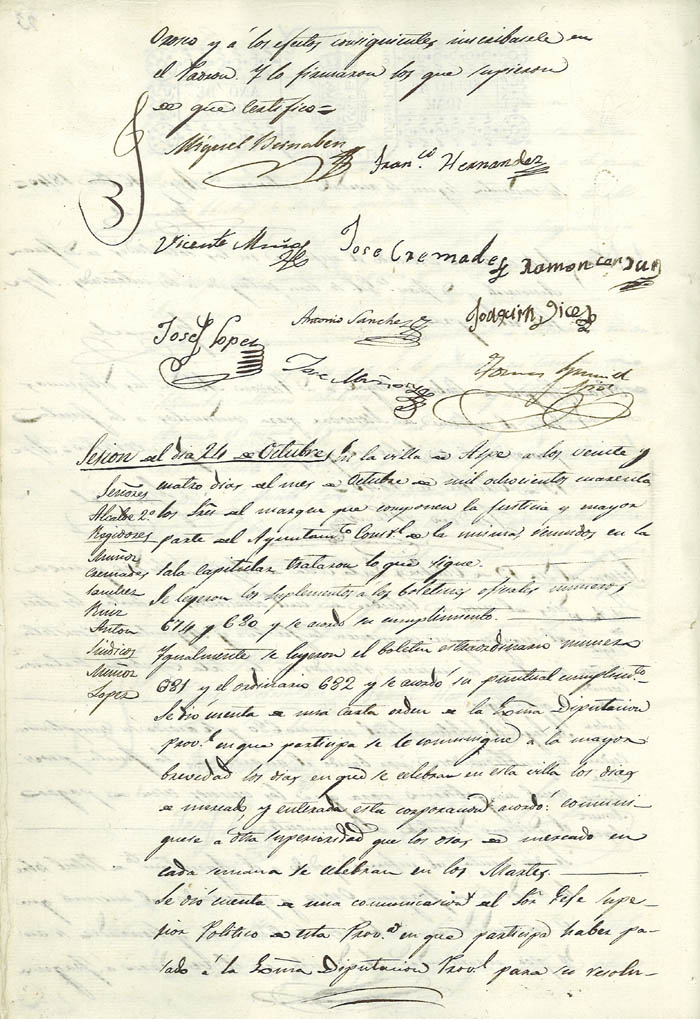 Orozco y á los efectos consiguientes inscribasele en
el Padron. Y lo firmaron los que supieron
de que certifico=
Miguel Bernabeu
Fran.co Hernandez
Vicente Muñoz
Jose Cremades
Ramon
Jose Lopez
Antonio Sanchez
Joaquin
Jose Muñoz
Tomas
Sesion del dia 24 de Octubre
En la villa de Aspe a los veinte y
cuatro dias del mes de Octubre de mil ochocientos cuarenta
los Sres del margen que componen la Justicia y mayor
parte del Ayuntam.to Const.l de la misma reunidos en la
sala capitular trataron lo que sigue.
Señores
Alcalde 2.o
Regidores
Muñoz
Cremades
Sanchez
Ruiz
Anton
Sindicos
Muñoz
Lopez
Se leyeron los suplementos a los boletines oficiales numeros
674 y 680 y se acordó su cumplimiento.
Igualmente se leyeron el boletin extraordinario numero
681 y el ordinario 682 y se acordó su puntual cumplim.to
Se dió cuenta de una carta orden de la Exma Diputacion
Prov.l en que participa se le comunique a la mayor
brevedad los dias en que se celebran en esta villa los dias
de mercado, y enterada esta corporacion acordó: comuni-
quese a dha superioridad que los dias de mercado en
cada semana se celebran en los Martes.
Se dió cuenta de una comunicacion del Sor Gefe Supe-
rior Politico de esta Prov.a en que participa haber pa-
sado á la Exma Diputacion Prov.l para su resolu-